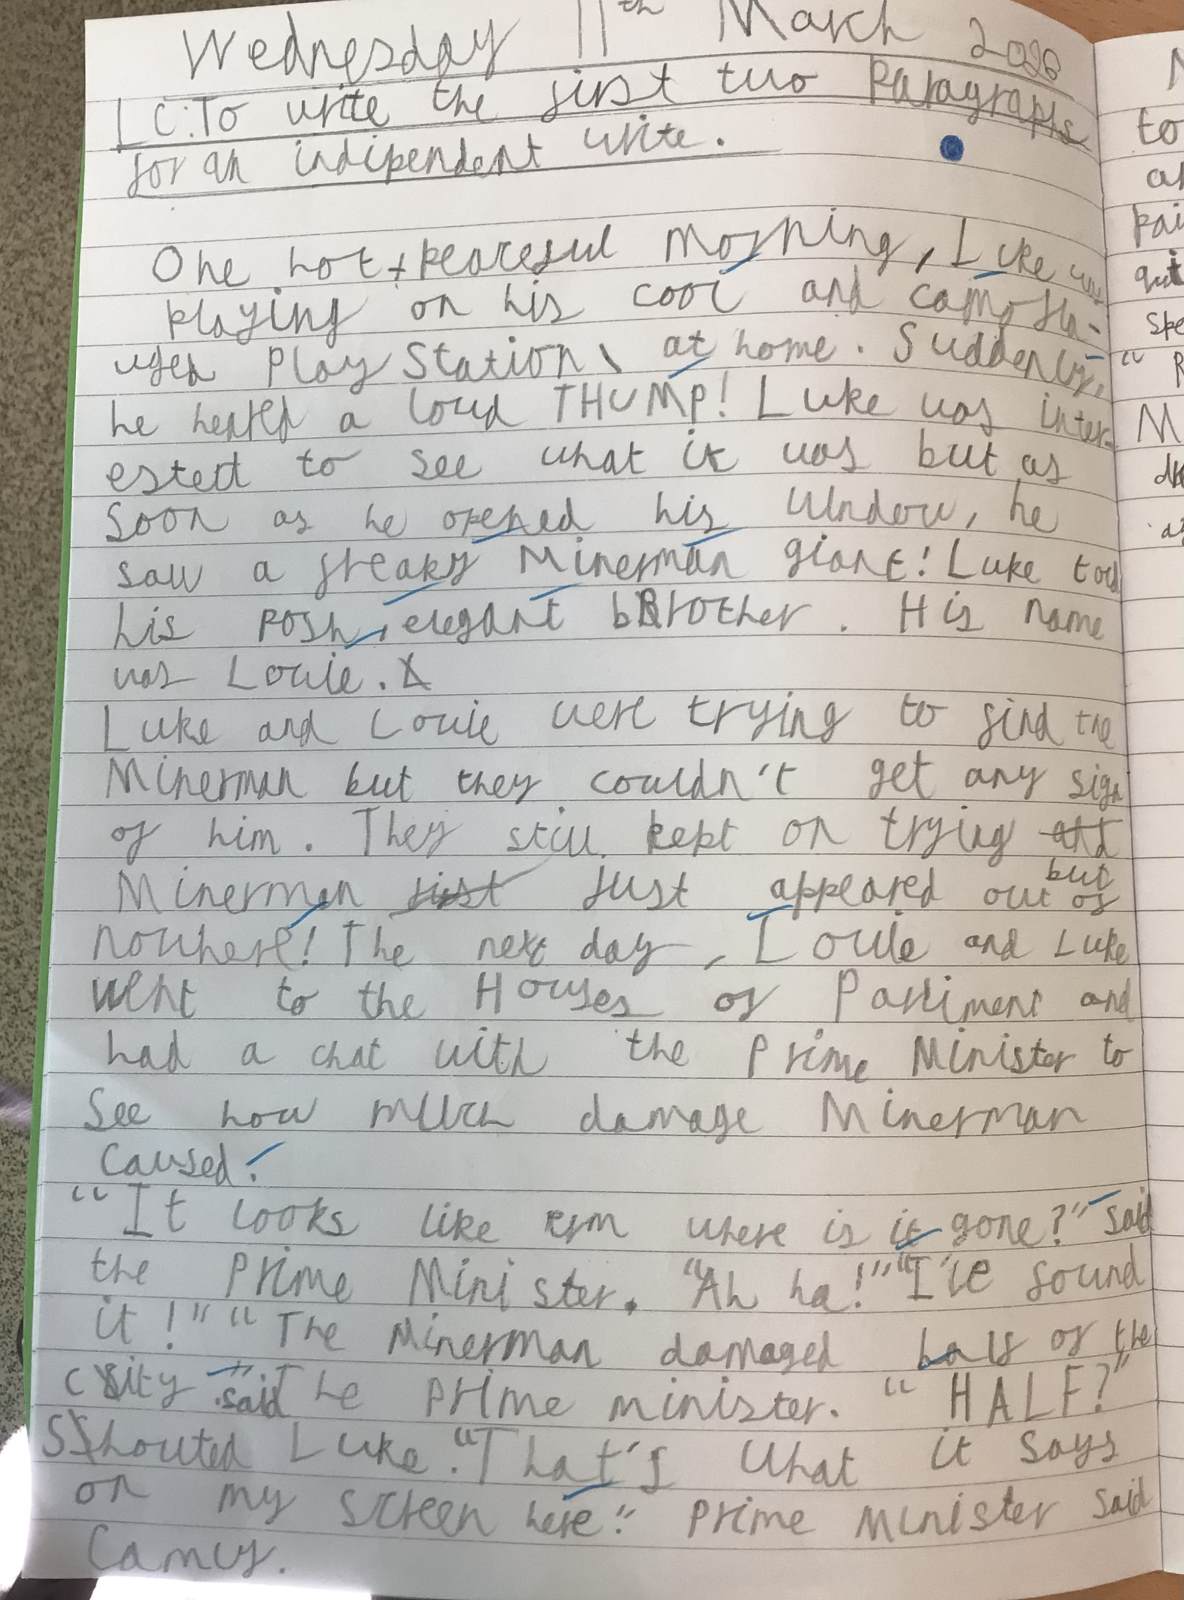 Wednesday 11th March 2020
LC: To write the first two Paragraphs
for an indipendent write.
One hot, peaceful morning, Luke was
playing on his cool and camofla-
uged PlayStation, at home. Suddenly,
he heared a loud THUMP! Luke was inter-
ested to see what it was but as
soon as he opened his window, he
saw a freaky Minerman giant! Luke told
his posh, elegant brother. His name
was Louie.
Luke and Louie were trying to find the
Minerman but they couldn't get any sign
of him. They still kept on trying but
Minerman just appeared out of
nowhere! The next day, Louie and Luke
went to the Houses of Parliment and
had a chat with the Prime Minister to
see how much damage Minerman
caused.
"It looks like erm where is it gone?" said
the Prime Minister. "Ah ha!" "I've found
it!" "The Minerman damaged half of the
city" said The prime minister. "HALF?"
Shouted Luke. "That's what it says
on my screen here." prime minister said
Camly.
to
M